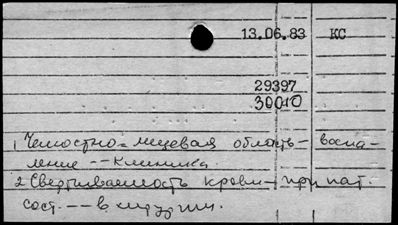 13.06.83 КС
29397
30010
1. Челюстно=лицевая область - воспа-
ление -- Клиника.
2 Свертываемость крови - при пат.
сост. --- в хирургии.